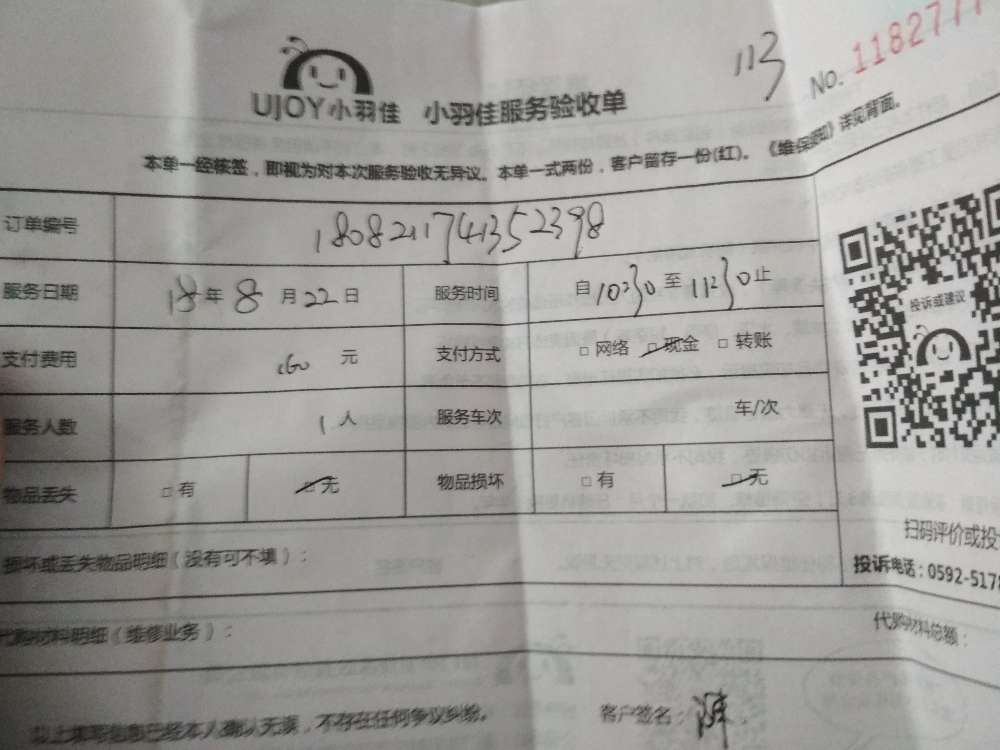 113
No. 118277
UJOY小羽佳 小羽佳服务验收单
本单一经核签，即视为对本次服务验收无异议。本单一式两份，客户留存一份(红)。《维保须知》详见背面。
订单编号 180821174135 2398
服务日期 18年8月22日 服务时间 自10:30至11:30止
支付费用 160元 支付方式 □网络 ☑现金 □转账
服务人数 1人 服务车次 车/次
物品丢失 □有 ☑无 物品损坏 □有 ☑无
投诉或建议
扫码评价或投
投诉电话：0592-5178
损坏或丢失物品明细（没有可不填）：
代购材料明细（维修业务）： 代购材料总额：
以上填写信息已经本人确认无误，不存在任何争议纠纷。 客户签名：